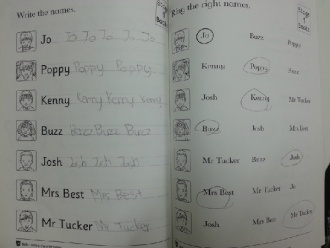 Write the names.
Jo Jo Jo Jo Jo
Poppy Poppy Poppy
Kenny Kenny Kenny Kenny
Buzz Buzz Buzz Buzz
Josh Josh Josh Josh
Mrs Best Mrs Best
Mr Tucker Mr Tucker
Ring the right names.
Jo Buzz Poppy
Kenny Poppy
Josh Kenny Mr Tucker
Buzz Josh Mrs Best
Mr Tucker Buzz Josh
Mrs Best Mr Tucker Jo
Josh Mrs Best Mr Tucker